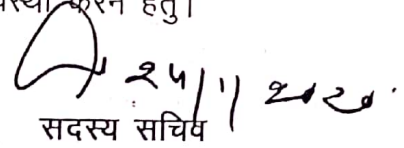 करने हेतु।
२५/११
सदस्य सचिव